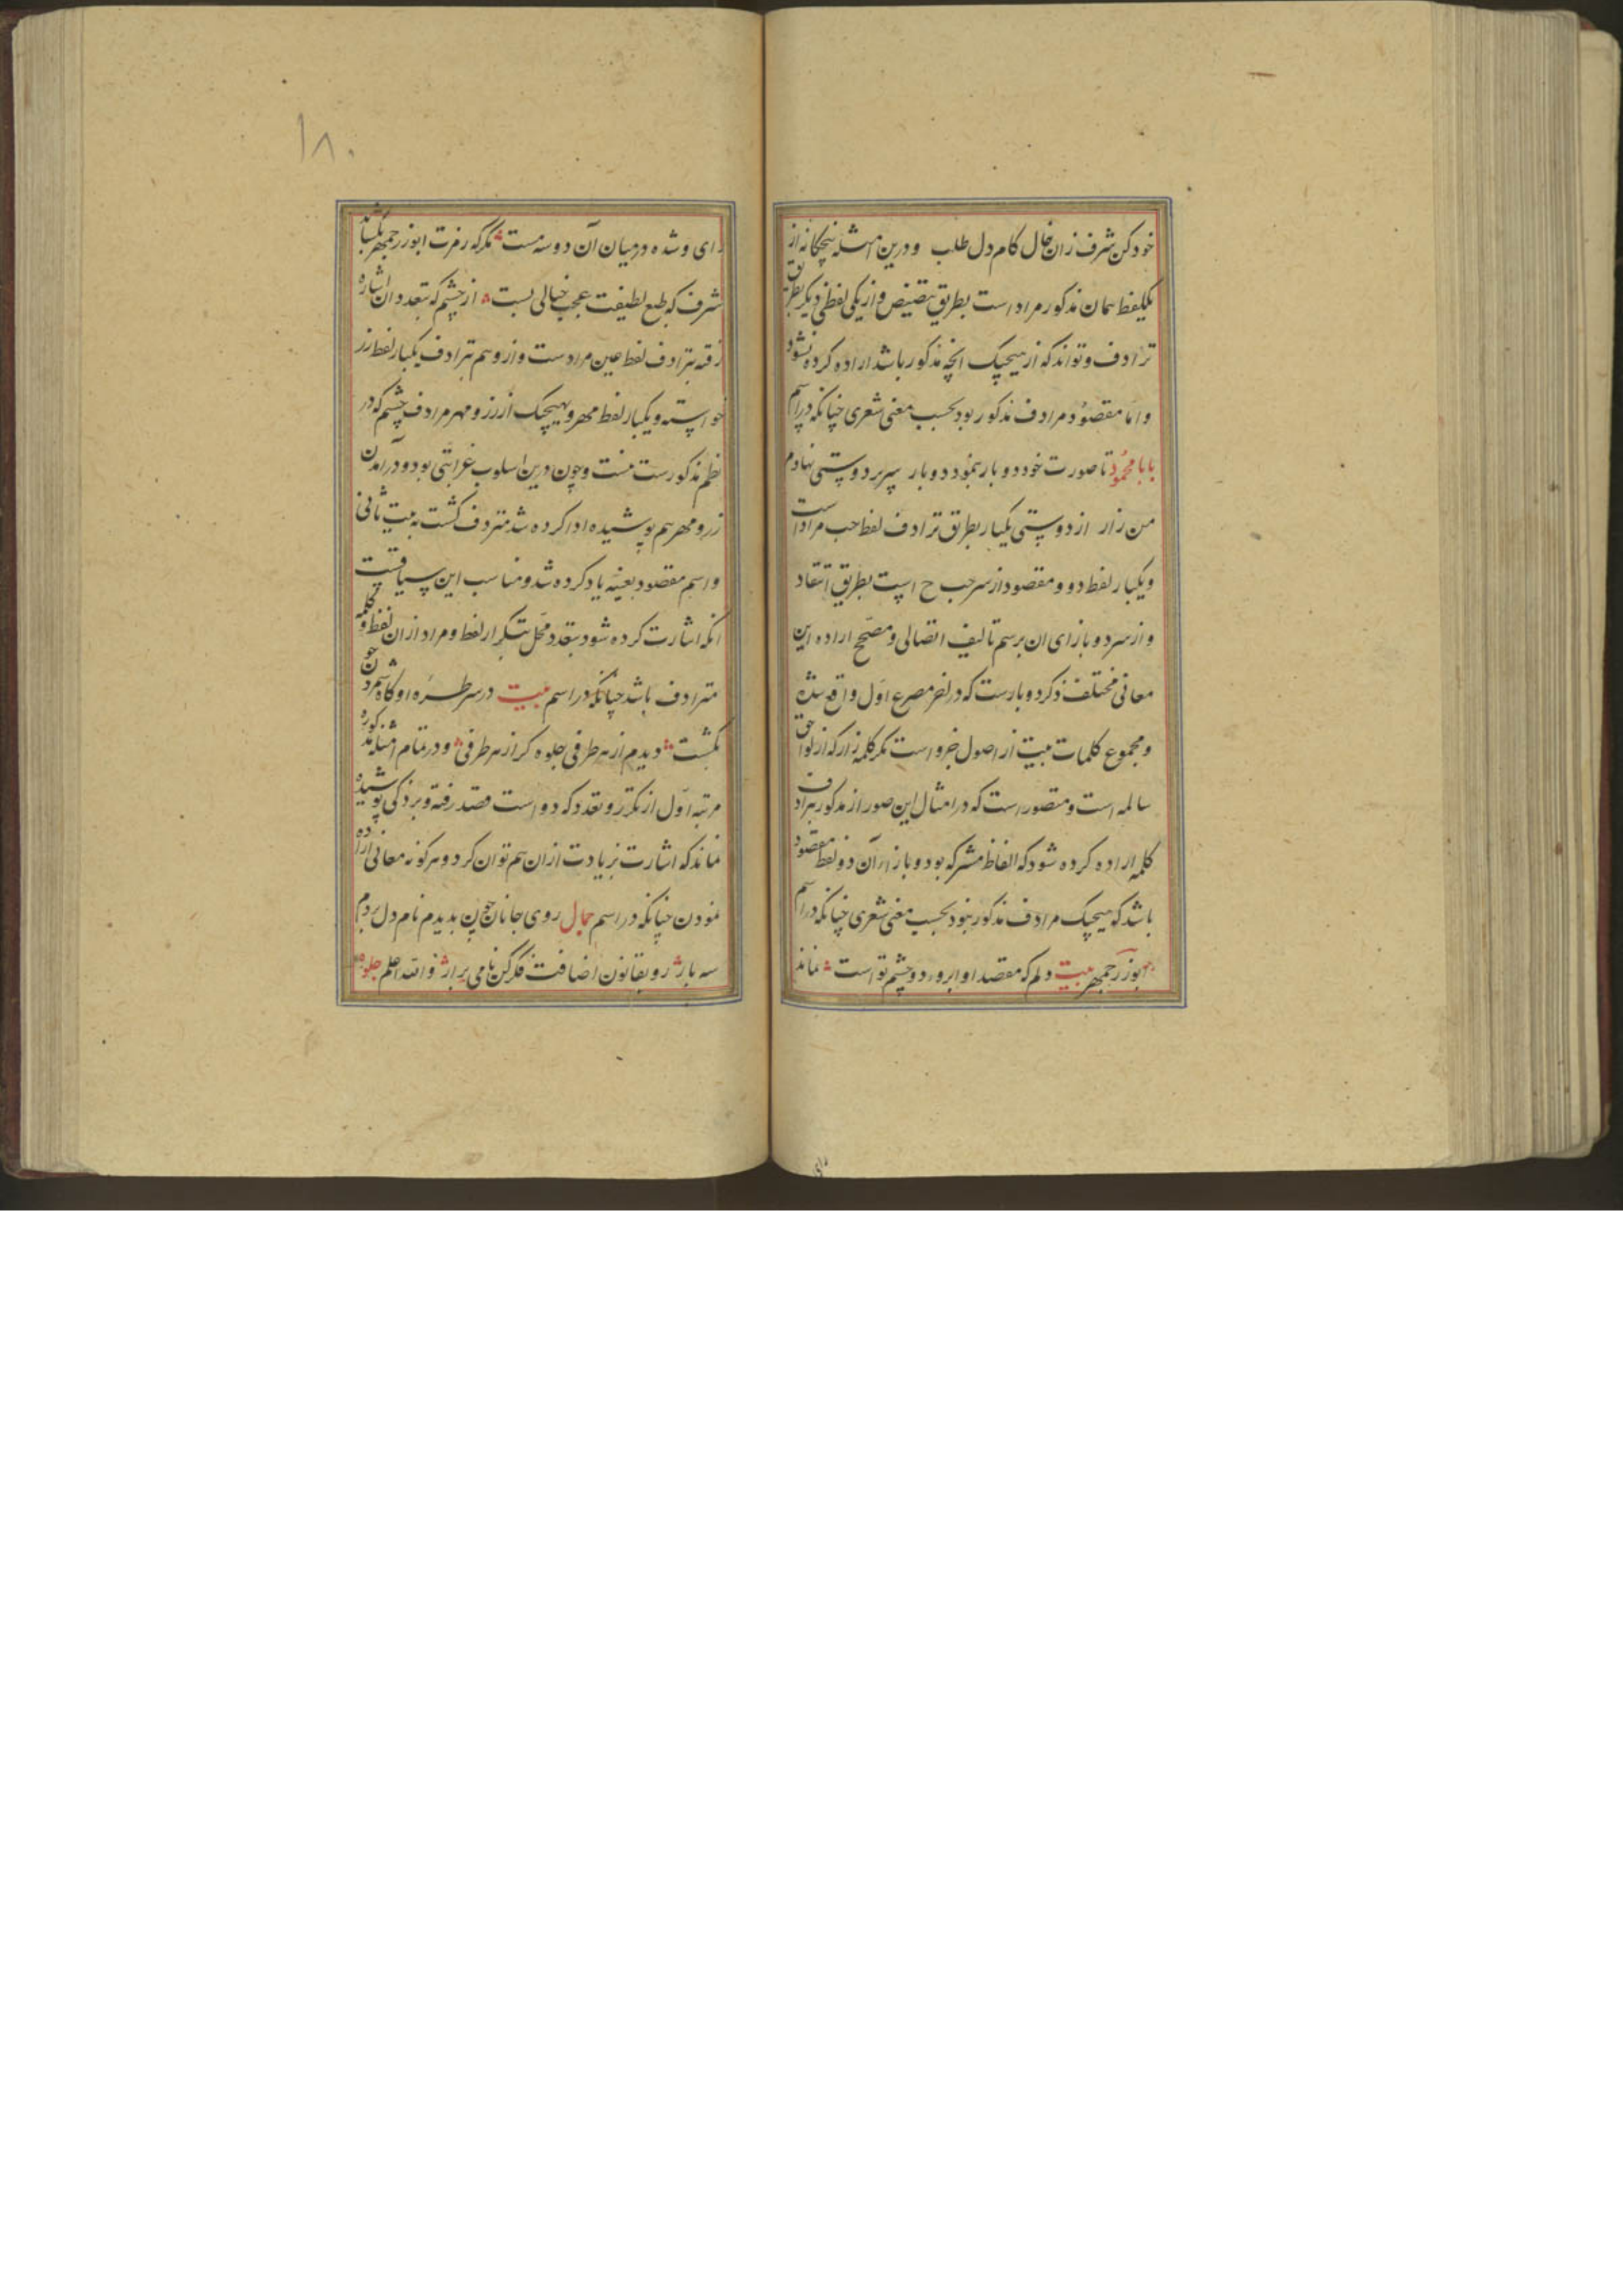 خود کن شرف زان خال کام دل طلب ودرین امثله پنجکانه از
یکلفظ همان مذکور مراد است بطریق تنصیص واز یکی لفظی دیکر بطریق
ترادف وتواند که از هیچیک انچه مذکور باشد اراده کرده نشود
واما مقصود مرادف مذکور بود بحسب معنی شعری چنانکه دراسم
بابا محمود تا صورت خود دو بار بنمود دو بار سر بر دوستی نهادم
من زار از دوستی یکبار بطریق ترادف لفظ حب مراد است
ویکبار لفظ دو ومقصود از سر حب ح است بطریق انتقاد
واز سر دو بازای ان برسم تالیف اتصالی ومصحح اراده این
معانی مختلف ذکر دو بارست که در اخر مصرع اول واقع شده
ومجموع کلمات بیت از اصول خرواست مکر کلمه زار که از لواحق
سالمه است ومتصور است که در امثال این صور از مذکور مرادف
کلمه اراده کرده شود که الفاظ مشترکه بود وبازاء آن دو لفظ مقصود
باشد که هیچیک مرادف مذکور نبود بحسب معنی شعری چنانکه دراسم
ابوزرجمهر بیت دلم که مقصد او ابروء دو چشم تو است نماند
رای وشده در میان آن دو سه مست مکر که رمزت ابوزرجمهر بکشاید
شرف که طبع لطیفت عجب خیالی بست از چشم که بتعدد ان اشاره
رفته بترادف لفظ عین مرادست وازو هم بترادف یکبار لفظ زر
خواسته ویکبار لفظ مهر وهیچیک از زر ومهر مرادف چشم که در
نظم مذکورست نیست وچون درین اسلوب غرابتی بود ودرآمدن
زر ومهر هم پوشیده ادا کرده شد متردف کشت به بیت ثانی
واسم مقصود بعینه یاد کرده شد ومناسب این سیاقت
انکه اشارت کرده شود بتعدد محل بتکرار لفظ ومراد ازان لفظ وکلمه
مترادف باشد چنانکه در اسم بیت در سر طره او کاه سمر چون
بکشت دیدم از هر طرفی جلوه کر از هر طرفی ودر تمام امثله مذکوره
مرتبه اول از تکرر وتعدد که دو است قصد رفته وبر ذکی پوشیده
نماند که اشارت بزیادت ازان هم توان کرد وهر کونه معانی اراده
نمودن چنانکه در اسم جمال روی جانان چون بدیدم نام دل بردم
سه بار رو بقانون اضافت فکر کن نامی برار والله اعلم جلوه
رای
۱۸۰